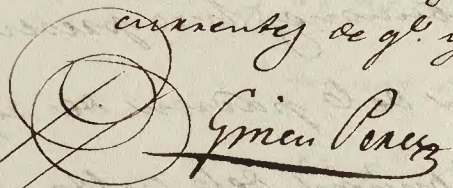 currentes de q.e y
Gines Perez